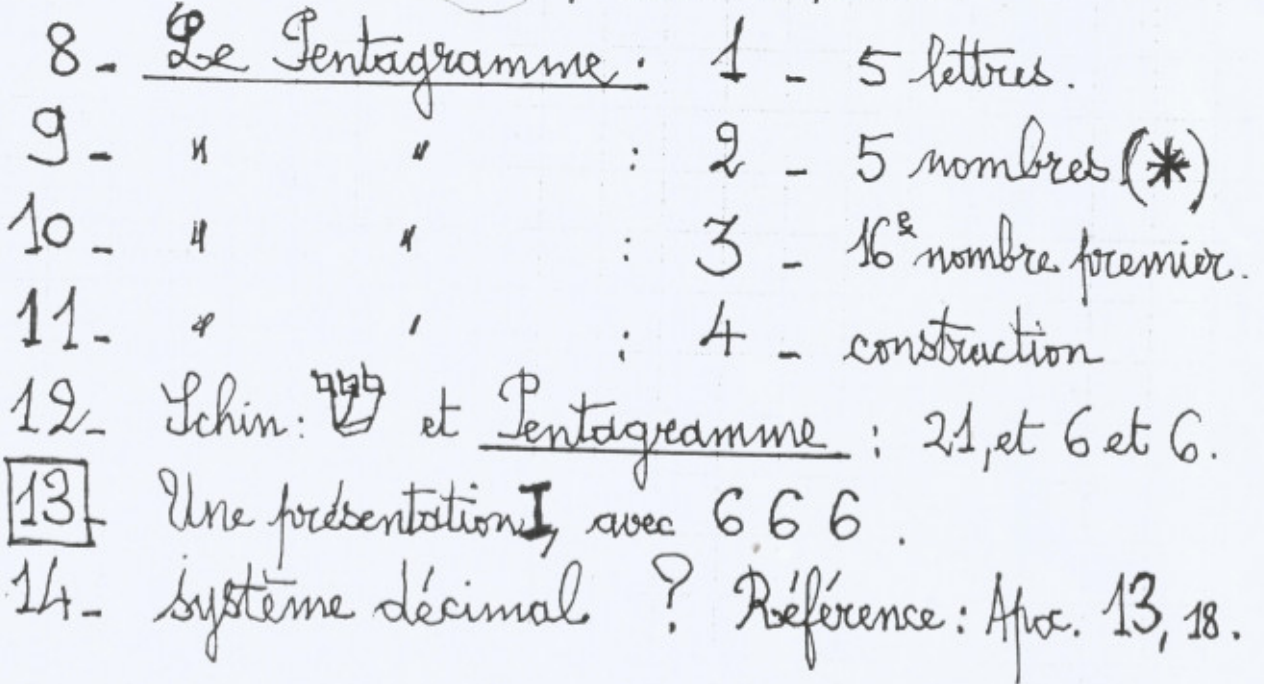 8- Le Pentagramme : 1 - 5 lettres.
9- " " : 2 - 5 nombres (*)
10- " " : 3 - 16e nombre premier.
11- " " : 4 - construction
12- Schin: ש et Pentagramme : 21, et 6 et 6.
13- Une présentation I, avec 6 6 6.
14- système décimal ? Référence : Apoc. 13, 18.